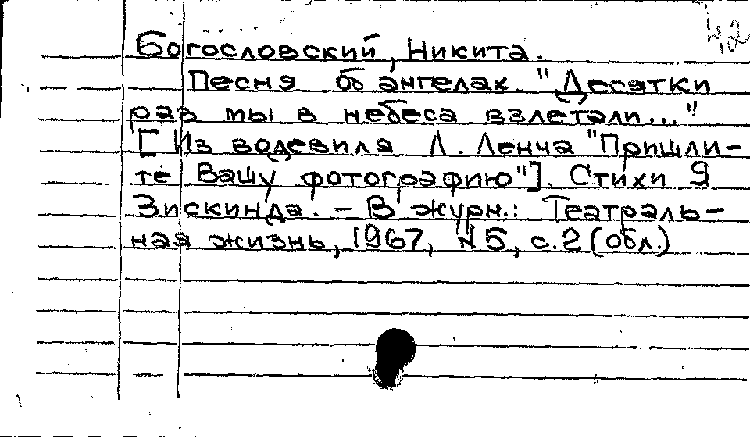 Богословский, Никита.
Песня об ангелах. "Десятки
раз мы в небеса взлетали..."
[Из водевиля Л. Ленча "Пришли-
те Вашу фотографию"]. Стихи Я
Зискинда. – В журн.: Театраль-
ная жизнь, 1967, N 5, с. 2 (обл.)